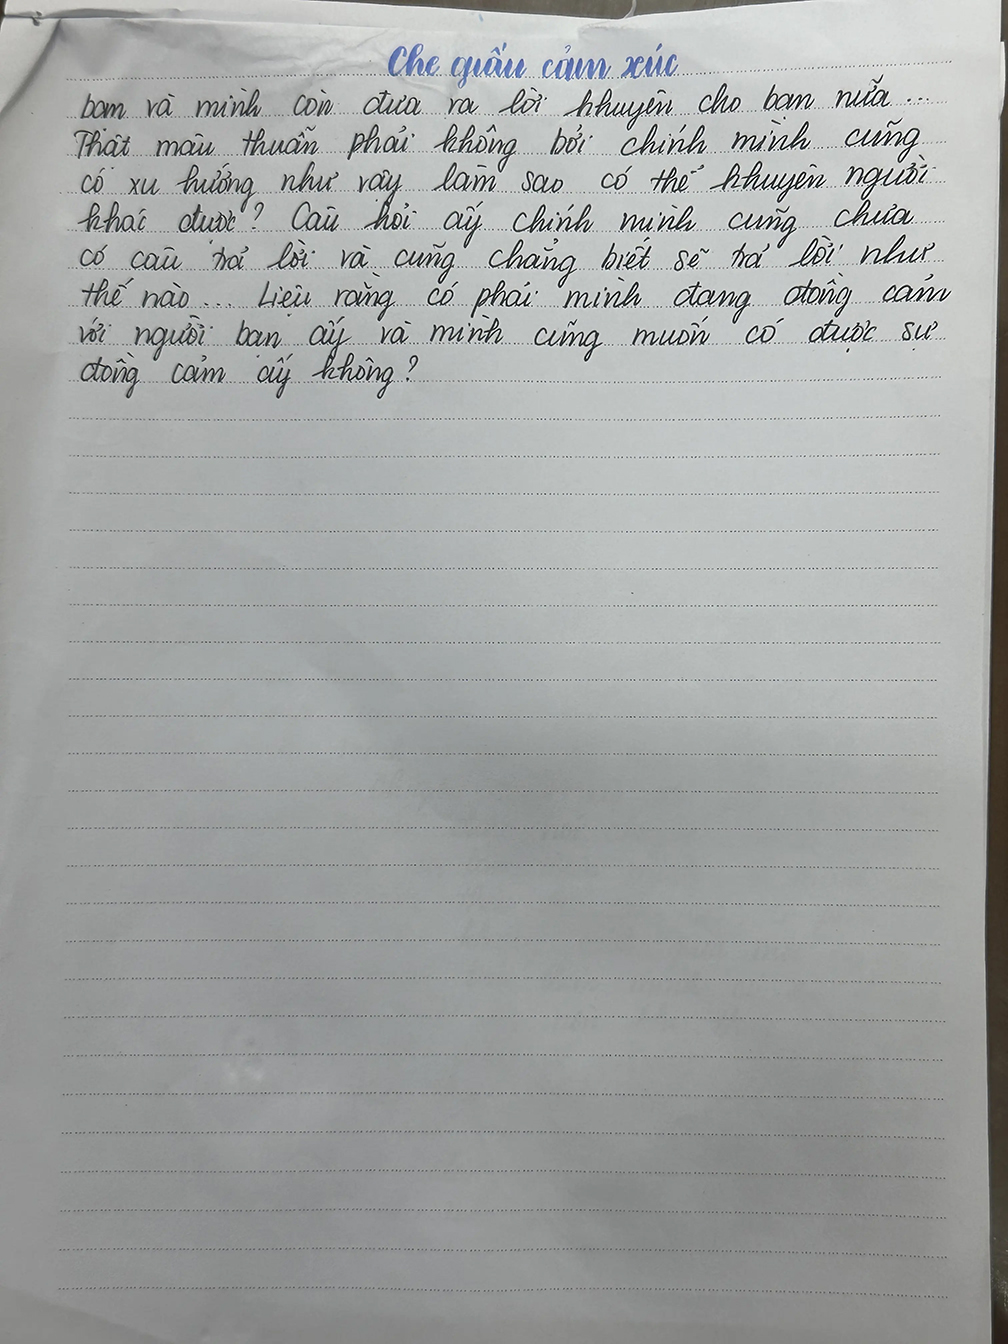 Che giấu cảm xúc
bạn và mình còn đưa ra lời khuyên cho bạn nữa...
Thật mâu thuẫn phải không bởi chính mình cũng
có xu hướng như vậy làm sao có thể khuyên người
khác được? Câu hỏi ấy chính mình cũng chưa
có câu trả lời và cũng chẳng biết sẽ trả lời như
thế nào... Liệu rằng có phải mình đang đồng cảm
với người bạn ấy và mình cũng muốn có được sự
đồng cảm ấy không?